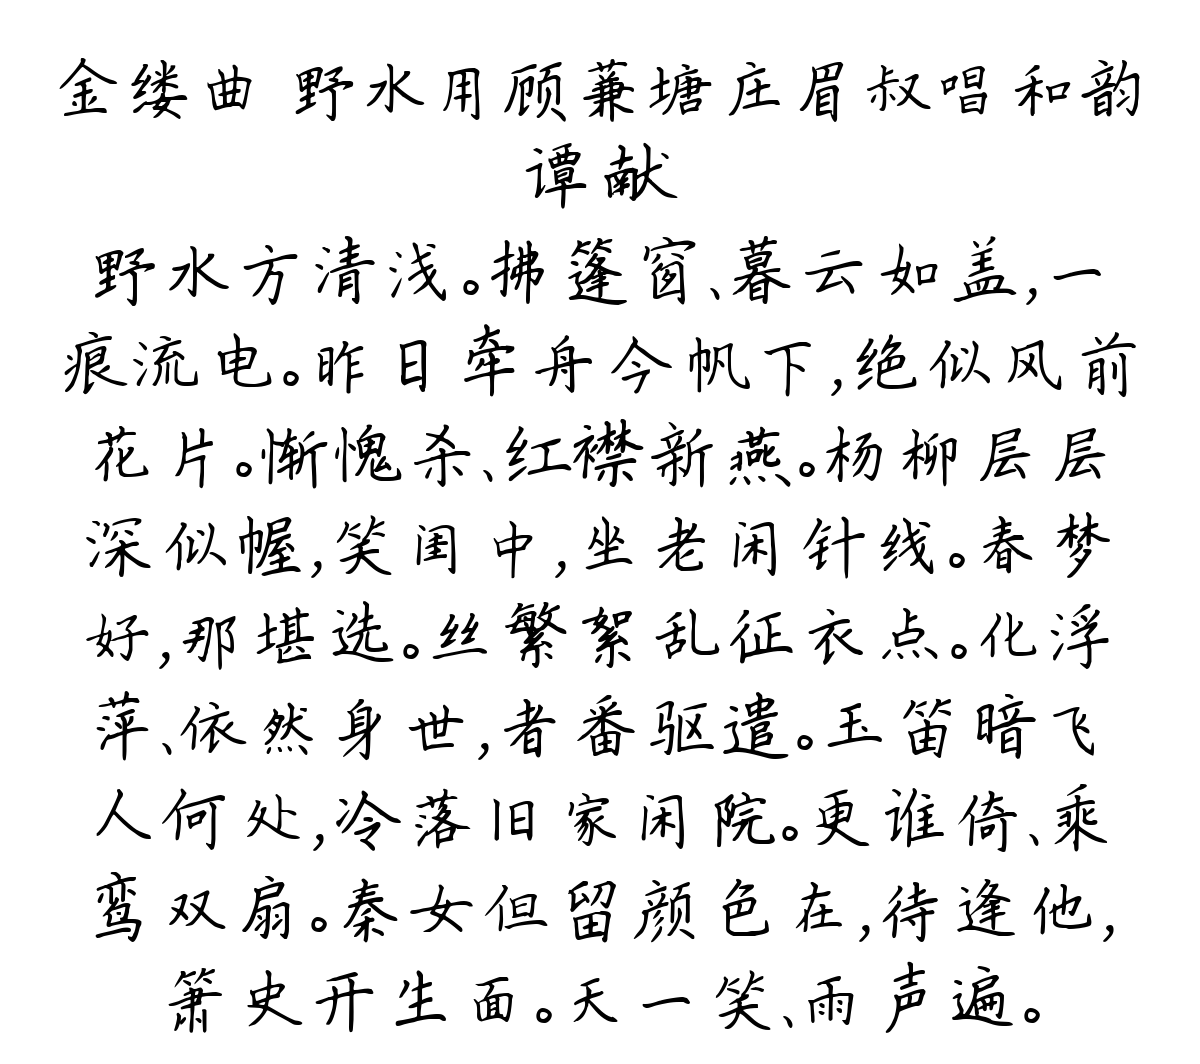 金缕曲 野水用顾蒹塘庄眉叔唱和韵
谭献
野水方清浅。拂篷窗、暮云如盖,一
痕流电。昨日牵舟今帆下,绝似风前
花片。惭愧杀、红襟新燕。杨柳层层
深似幄,笑闺中,坐老闲针线。春梦
好,那堪选。丝繁絮乱征衣点。化浮
萍、依然身世,者番驱遣。玉笛暗飞
人何处,冷落旧家闲院。更谁倚、乘
鸾双扇。秦女但留颜色在,待逢他,
箫史开生面。天一笑、雨声遍。